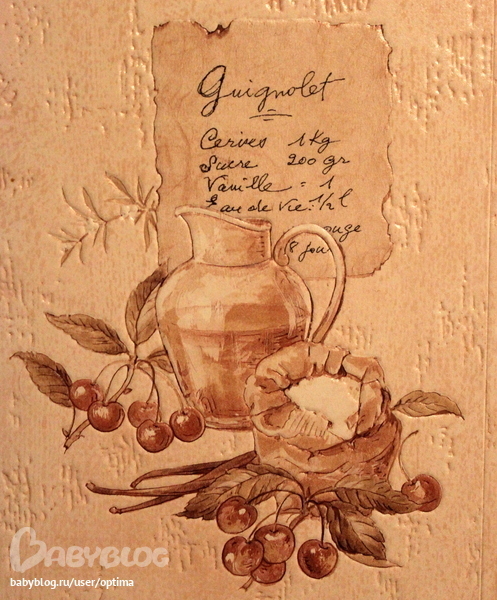 Guignolet
Cerises 1Kg
Sucre 200 gr
Vanille = 1
Eau de Vie: 1/2 l
ouge
18 jou
BABYBLOG
babyblog.ru/user/optima